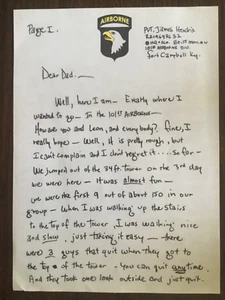 Page I.
AIRBORNE
Pvt. James Hendrix
101st Airborne Div.
Fort Campbell Ky.
Dear Dad —
Well, here I am — Exactly where I
wanted to go — In the 101st AIRBORNE —
How are you and Leon, and everybody? fine, I
really hope — Well, it is pretty rough, but
I can't complain and I don't regret it... So far —
We jumped out of the 34 ft. tower on the 3rd day
we were here — it was almost fun —
we were the first 9 out of about 150 in our
group — When I was walking up the stairs
to the top of the tower, I was walking nice
and slow, just taking it easy — there
were 3 guys that quit when they got to
the top of the tower — you can quit anytime.
And they took one look outside and just quit.